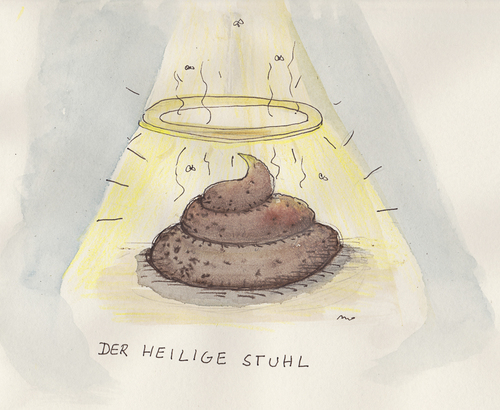 DER HEILIGE STUHL